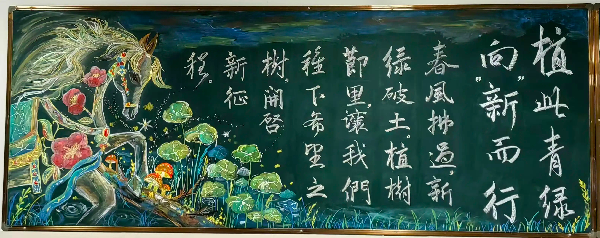 植此青绿
向"新"而行
春風拂過,新
绿破土。植樹
節里,讓我們
種下希望之
樹,開啓
新征
程。